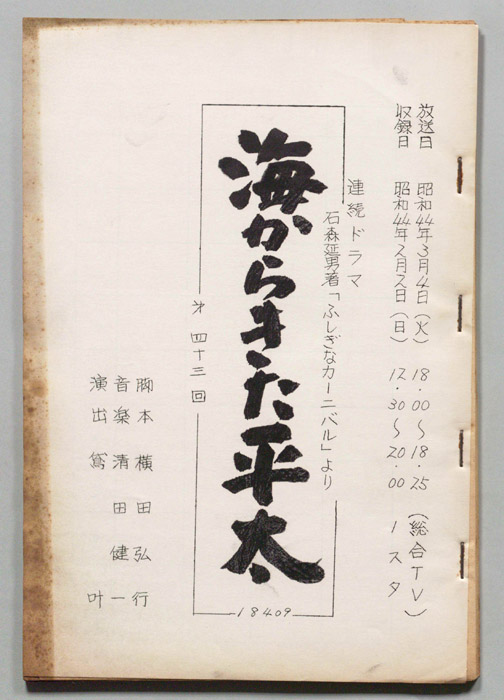 放送日 昭和44年3月4日(火) 18.00〜18.25 (総合TV)
収録日 昭和44年2月2日(日) 17.30〜20.00 1スタ
連続ドラマ
石森延男著「ふしぎなカーニバル」より
海からきた平太
第四十三回
18409
脚本 横田弘行
音楽 清田健一
演出 叶